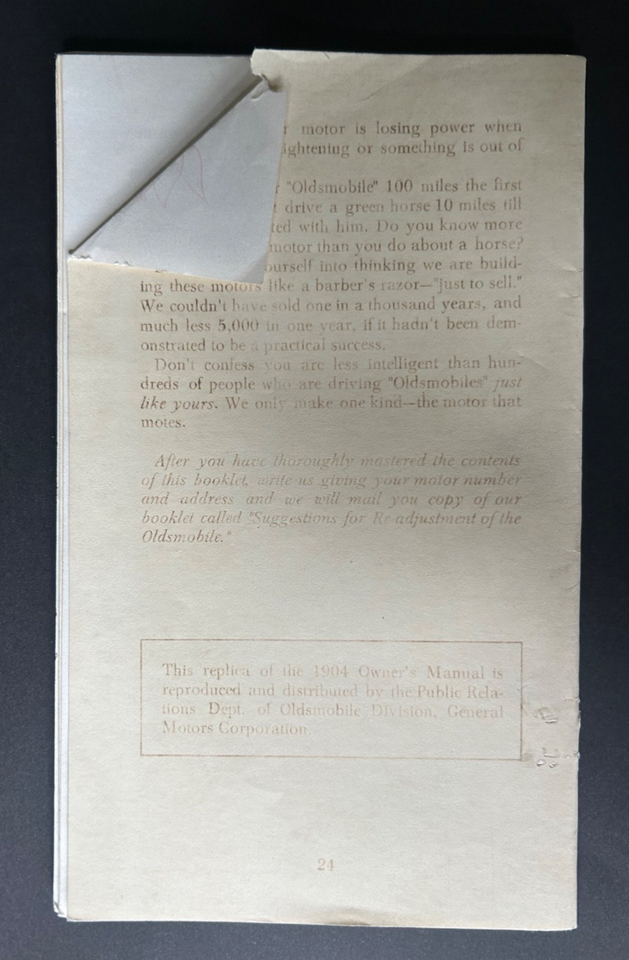 motor is losing power when
ightening or something is out of
"Oldsmobile" 100 miles the first
drive a green horse 10 miles till
ted with him. Do you know more
motor than you do about a horse?
ourself into thinking we are build-
ing these motors like a barber's razor—"just to sell."
We couldn't have sold one in a thousand years, and
much less 5,000 in one year, if it hadn't been dem-
onstrated to be a practical success.
Don't confess you are less intelligent than hun-
dreds of people who are driving "Oldsmobiles" just
like yours. We only make one kind—the motor that
motes.
After you have thoroughly mastered the contents
of this booklet, write us giving your motor number
and address and we will mail you copy of our
booklet called "Suggestions for Re-adjustment of the
Oldsmobile."
This replica of the 1904 Owner's Manual is
reproduced and distributed by the Public Rela-
tions Dept. of Oldsmobile Division, General
Motors Corporation
24